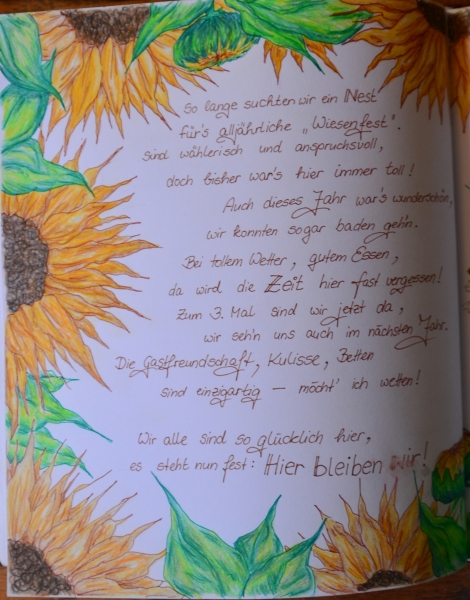 So lange suchten wir ein Nest
für's alljährliche „Wiesenfest".
Sind wählerisch und anspruchsvoll,
doch bisher war's hier immer toll!
Auch dieses Jahr war's wunderschön,
wir konnten sogar baden geh'n.
Bei tollem Wetter, gutem Essen,
da wird die Zeit hier fast vergessen!
Zum 3. Mal sind wir jetzt da,
wir seh'n uns auch im nächsten Jahr.
Die Gastfreundschaft, Kulisse, Betten
sind einzigartig – möcht' ich wetten!
Wir alle sind so glücklich hier,
es steht nun fest: Hier bleiben wir!